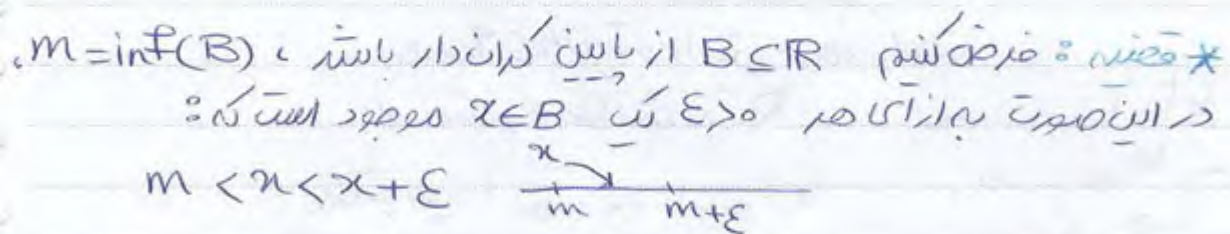 * قضیه : فرض کنیم B ⊆ ℝ از پایین کران‌دار باشد ، m = inf(B) ،
در این صورت به ازای هر ε > 0 یک x ∈ B موجود است که :
m < x < x + ε
x
m m+ε